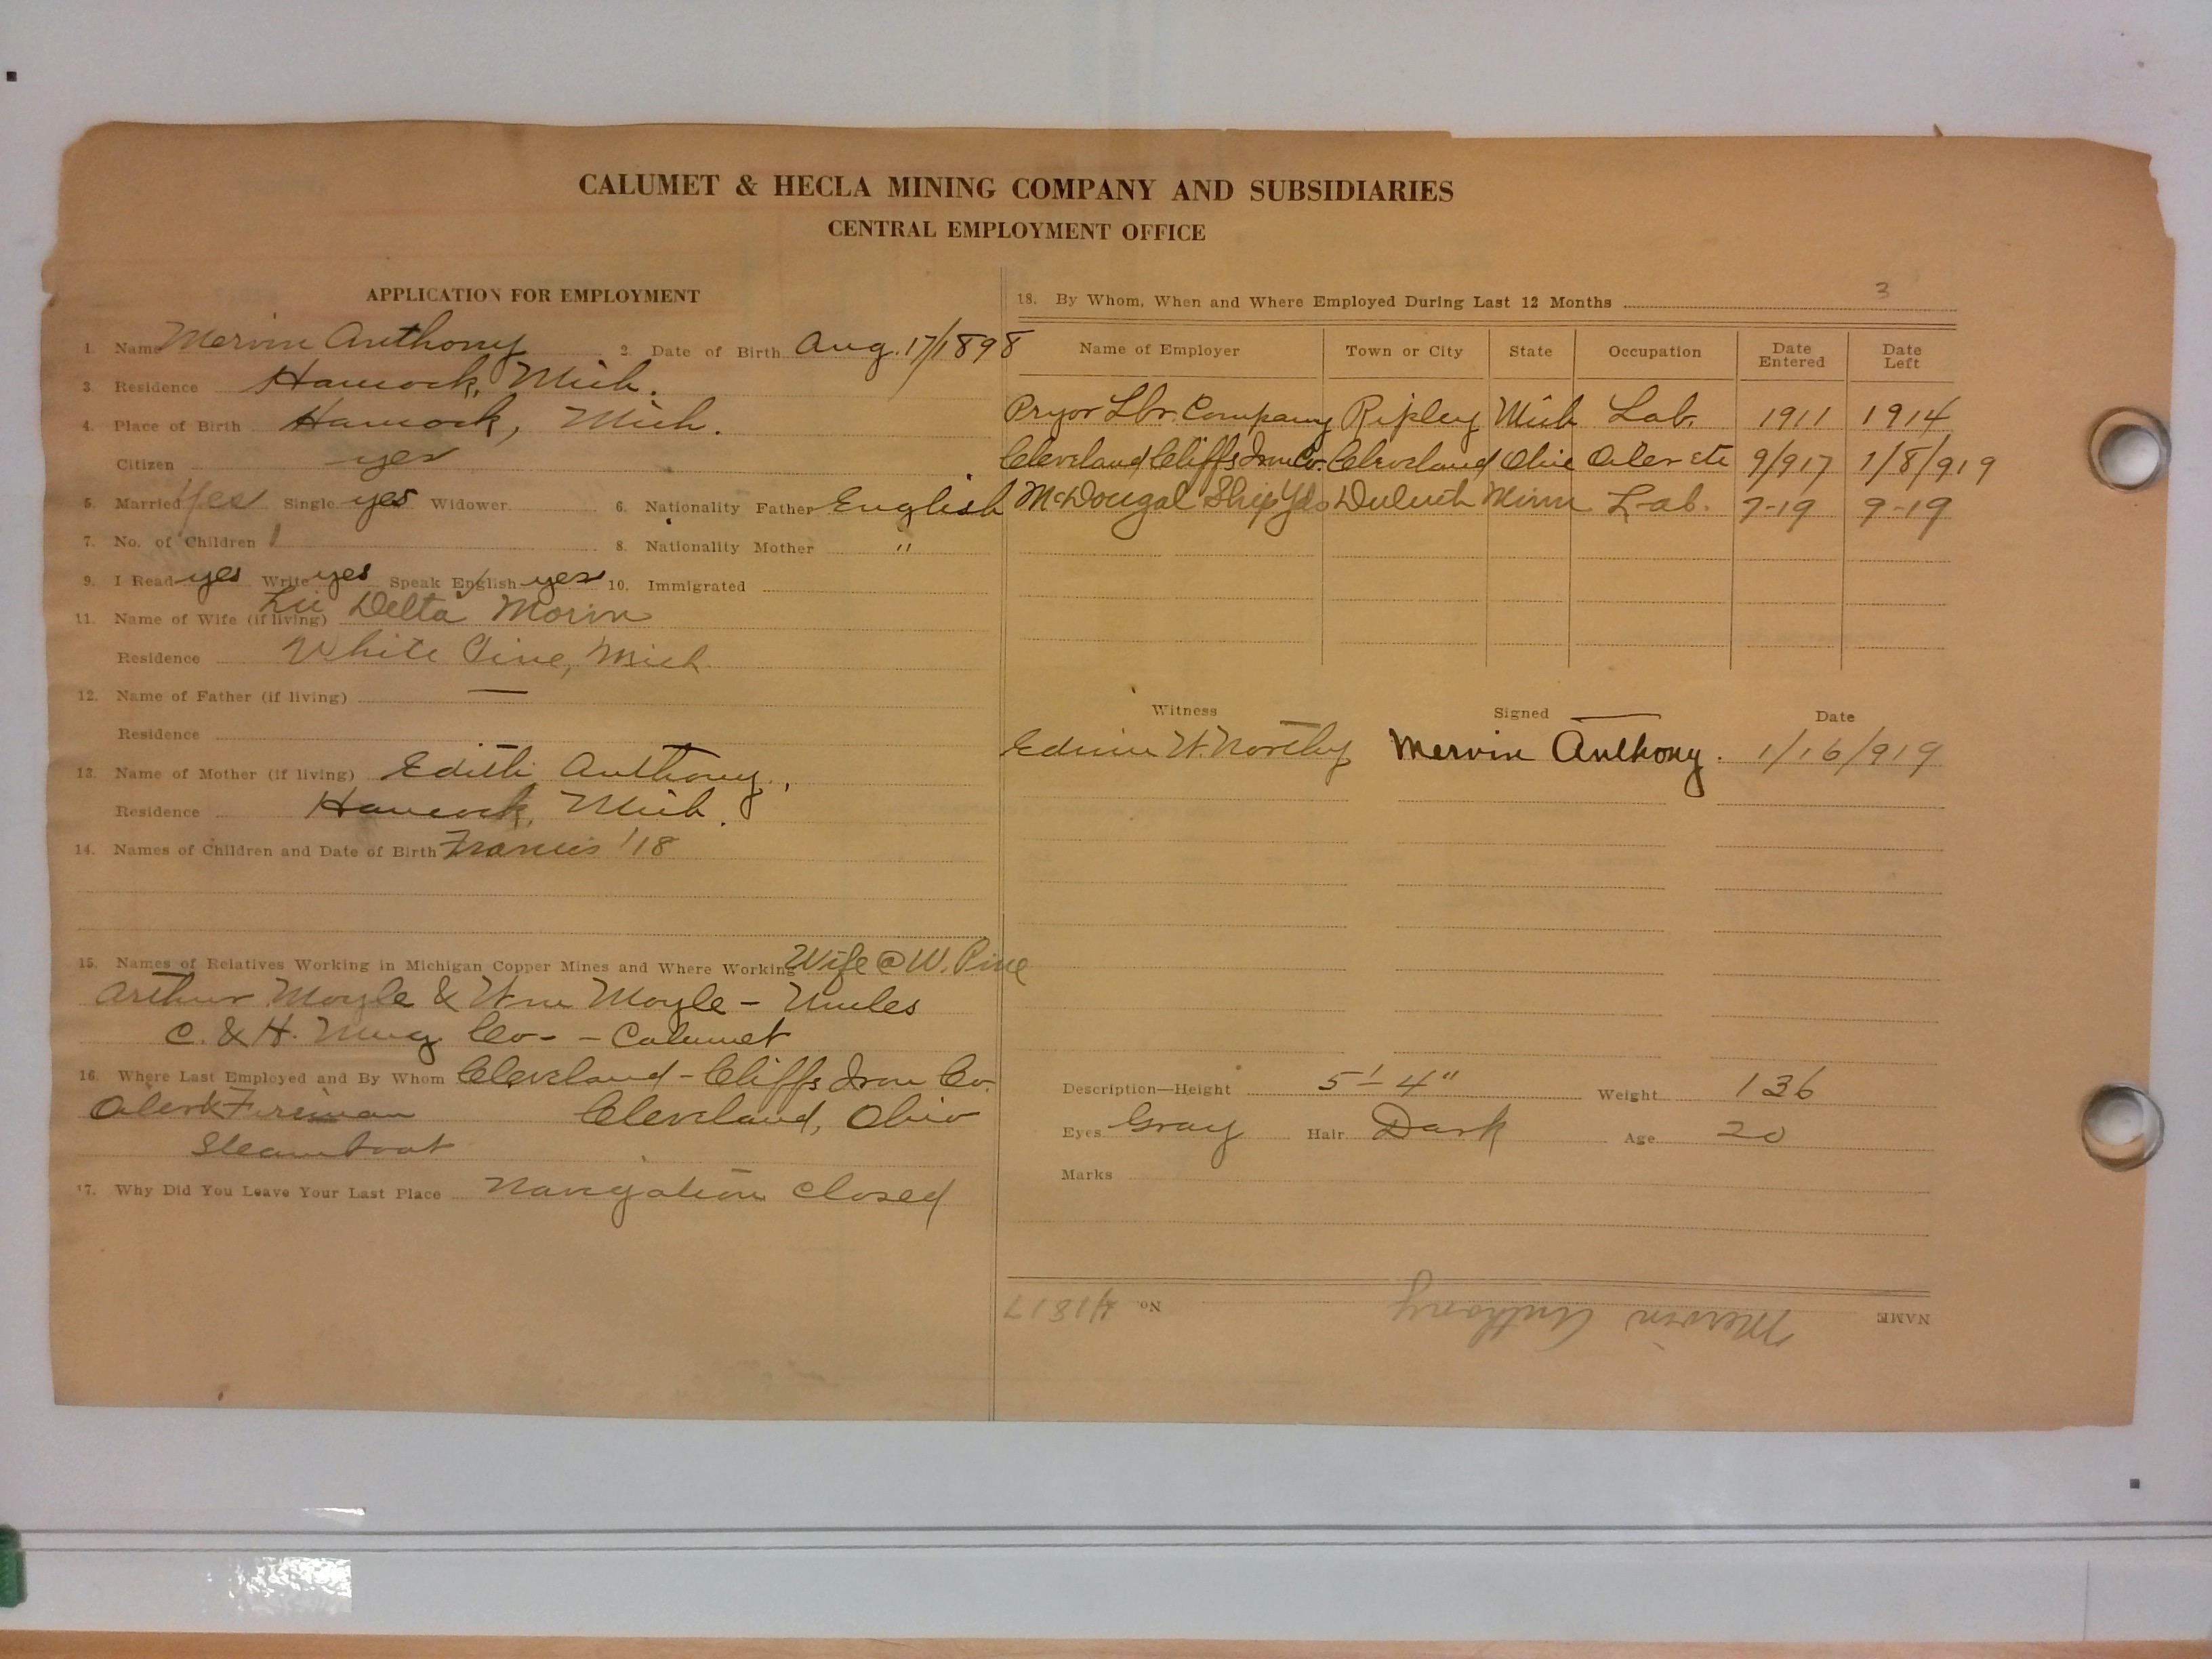 CALUMET & HECLA MINING COMPANY AND SUBSIDIARIES
CENTRAL EMPLOYMENT OFFICE
APPLICATION FOR EMPLOYMENT
1. Name Mervin Anthony 2. Date of Birth Aug. 17/1898
3. Residence Hancock, Mich.
4. Place of Birth Hancock, Mich.
Citizen yes
5. Married Yes Single yes Widower 6. Nationality Father English
7. No. of Children 1 8. Nationality Mother "
9. I Read yes Write yes Speak English yes 10. Immigrated
11. Name of Wife (if living) Delta Morin
Residence White Pine, Mich
12. Name of Father (if living) —
Residence
13. Name of Mother (if living) Edith Anthony,
Residence Hancock, Mich.
14. Names of Children and Date of Birth Francis '18
15. Names of Relatives Working in Michigan Copper Mines and Where Working Wife @ W. Pine
Arthur Moyle & Wm Moyle - Uncles
C. & H. Mng Co- - Calumet
16. Where Last Employed and By Whom Cleveland-Cliffs Iron Co.
Fireman Cleveland, Ohio
Steamboat
17. Why Did You Leave Your Last Place Navigation Closed
18. By Whom, When and Where Employed During Last 12 Months 3
Name of Employer Town or City State Occupation Date Entered Date Left
Pryor Lbr. Company Ripley Mich Lab. 1911 1914
Cleveland Cliffs Iron Co. Cleveland Ohio 9/917 1/8/919
McDougal Ship Yds Duluth Minn Lab. 7-19 9-19
Witness Signed Date
Edwin W. Northy Mervin Anthony. 1/16/919
Description—Height 5'-4" Weight 136
Eyes Gray Hair Dark Age 20
Marks
NAME Mervin Anthony No. 41817